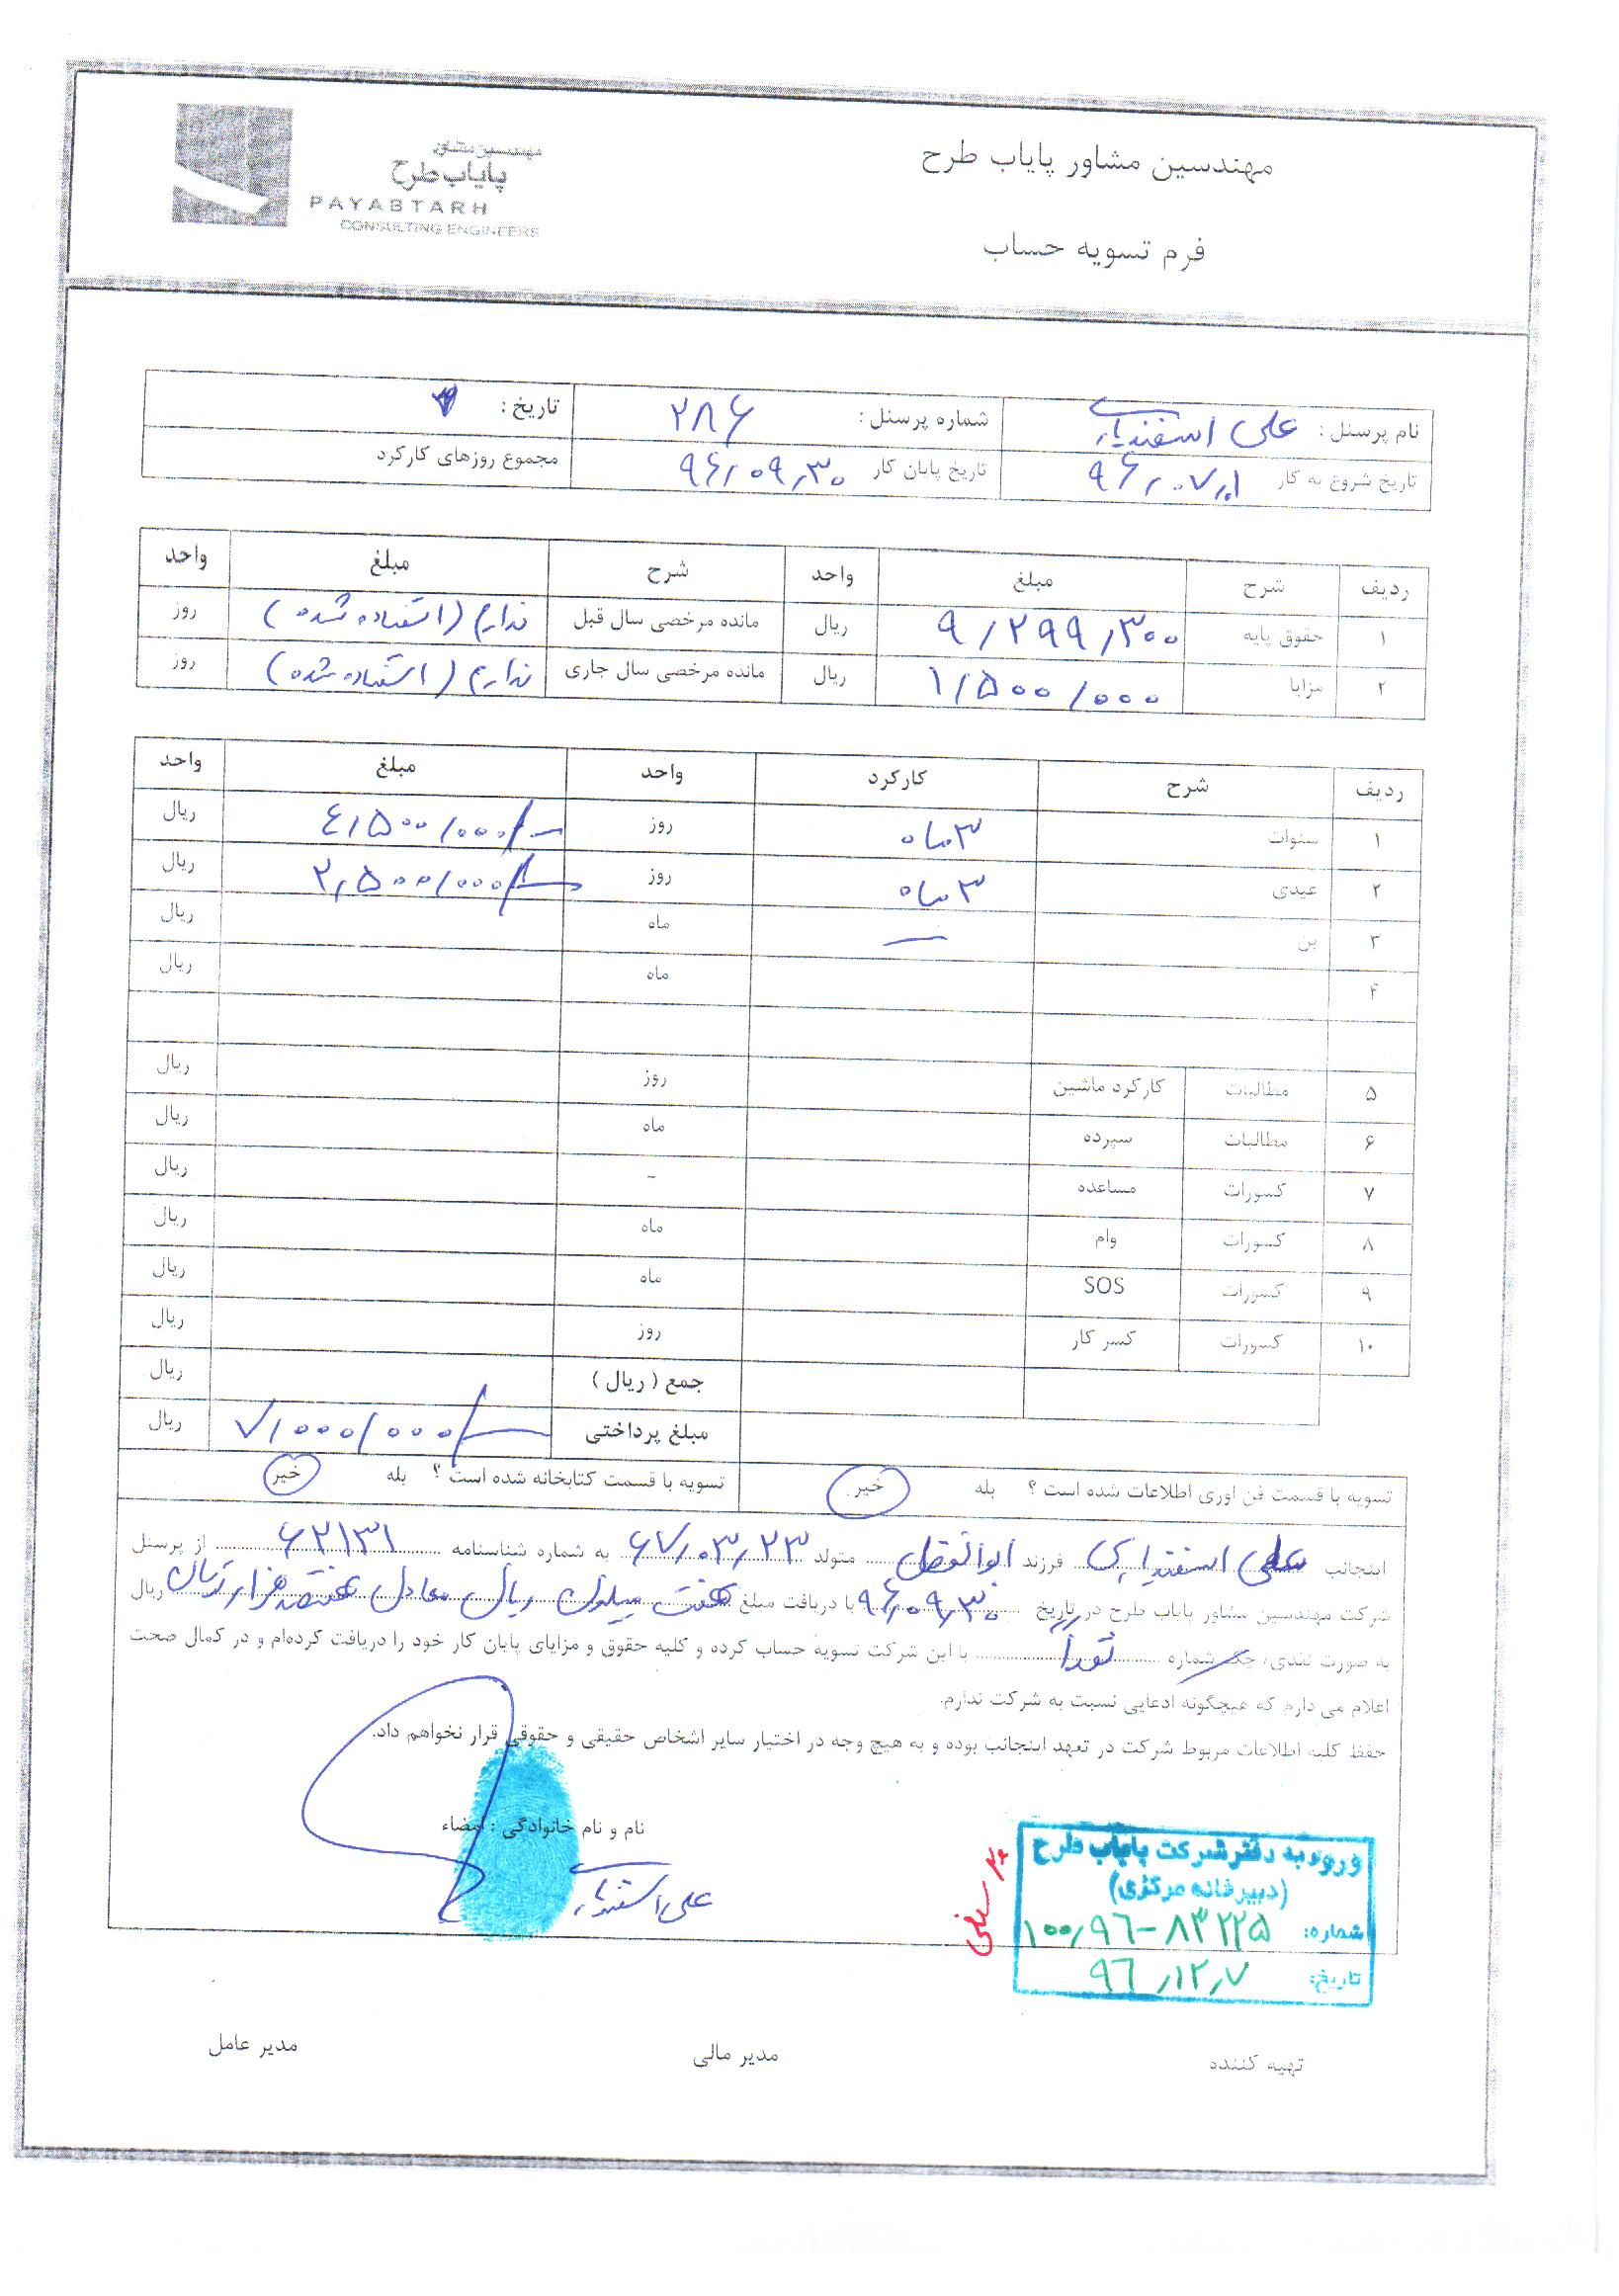 مهندسین مشاور پایاب طرح
مهندسین مشاور
پایاب طرح
PAYABTARH
CONSULTING ENGINEERS
فرم تسویه حساب
نام پرسنل : علی اسفندیاری شماره پرسنل : ۲۸۶ تاریخ :
تاریخ شروع به کار ۹۶٫۰۷٫۰۱ تاریخ پایان کار ۹۶٫۰۹٫۳۰ مجموع روزهای کارکرد
ردیف شرح مبلغ واحد شرح مبلغ واحد
۱ حقوق پایه ۹/۲۹۹/۳۰۰ ریال مانده مرخصی سال قبل ندارم (استفاده شده) روز
۲ مزایا ۱/۵۰۰/۰۰۰ ریال مانده مرخصی سال جاری ندارم (استفاده شده) روز
ردیف شرح کارکرد واحد مبلغ واحد
۱ سنوات ۳ ماه روز ۴/۵۰۰/۰۰۰/- ریال
۲ عیدی ۳ ماه روز ۲/۵۰۰/۰۰۰/- ریال
۳ بن — ماه ریال
۴ ماه ریال
۵ مطالبات کارکرد ماشین روز ریال
۶ مطالبات سپرده ماه ریال
۷ کسورات مساعده - ریال
۸ کسورات وام ماه ریال
۹ کسورات SOS ماه ریال
۱۰ کسورات کسر کار روز ریال
جمع ( ریال ) ریال
مبلغ پرداختی ۷/۰۰۰/۰۰۰/- ریال
تسویه با قسمت فن اوری اطلاعات شده است ؟ بله خیر تسویه با قسمت کتابخانه شده است ؟ بله خیر
اینجانب علی اسفندیاری فرزند ابوالفضل متولد ۶۷٫۰۳٫۲۳ به شماره شناسنامه ۶۲۱۳۱ از پرسنل
شرکت مهندسین مشاور پایاب طرح در تاریخ ۹۶٫۰۹٫۳۰ با دریافت مبلغ هفت میلیون ریال معادل هفتصد هزار تومان ریال
به صورت نقدی، چک شماره نقداً با این شرکت تسویه حساب کرده و کلیه حقوق و مزایای پایان کار خود را دریافت کرده‌ام و در کمال صحت
اعلام می دارم که هیچگونه ادعایی نسبت به شرکت ندارم.
حفظ کلیه اطلاعات مربوط شرکت در تعهد اینجانب بوده و به هیچ وجه در اختیار سایر اشخاص حقیقی و حقوقی قرار نخواهم داد.
نام و نام خانوادگی : امضاء
علی اسفندیاری
ورود به دفتر شرکت پایاب طرح
(دبیرخانه مرکزی)
شماره: ۱۰۰٫۹۶-۸۳۲۲۵
تاریخ: ۹۶٫۱۲٫۷
تهیه کننده مدیر مالی مدیر عامل